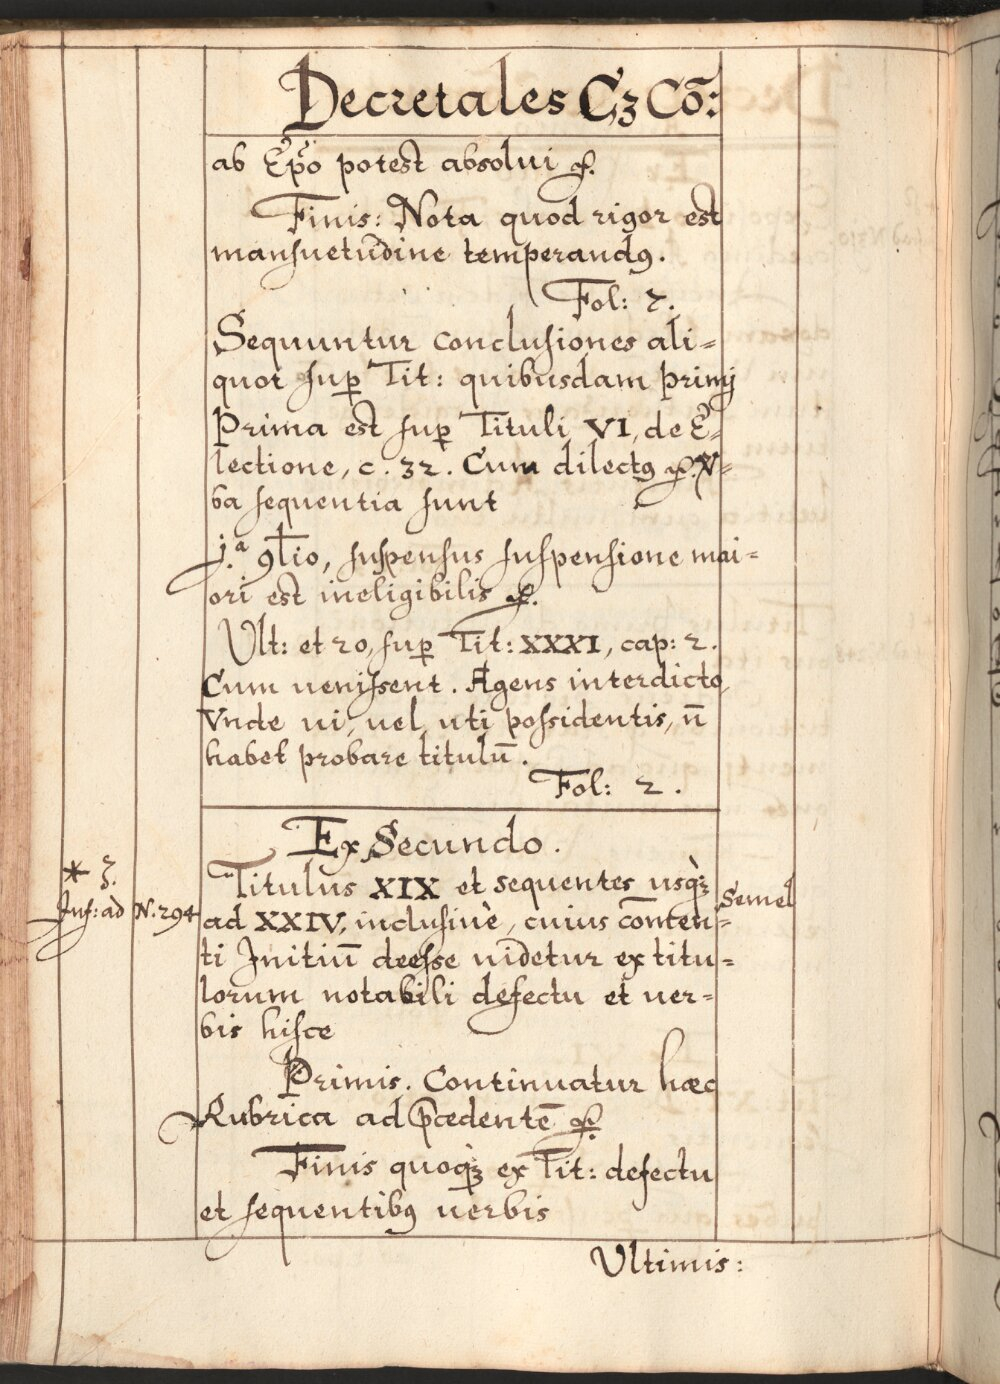 Decretales Cʒ Cō:
ab Ep̃o potest absolui ꝛc.
Finis: Nota quod rigor est
mansuetudine temperandꝰ.
Fol: 2.
Sequuntur conclusiones ali=
quot sup̱ Tit: quibusdam primj
Prima est sup̱ Tituli VI, de E=
lectione, c. 32. Cum dilectꝰ ꝛc. V=
ba sequentia sunt
j.ª ꝯtio, suspensus suspensione mai=
ori est ineligibilis ꝛc.
Ult: et 20, sup̱ Tit: XXXI, cap: 2.
Cum uenissent. Agens interdicto,
Vnde ui, uel, uti possidentis, n̄
habet probare titulū.
Fol: 2.
Ex Secundo.
* 3.
Titulus XIX et sequentes usq̀ʒ
Semel
Inf: ad N. 294
ad XXIV, inclusiuè, cuius conten=
ti Initiū deesse uidetur ex titu=
lorum notabili defectu et uer=
bis hisce
Primis. Continuatur hæc
Rubrica ad p̄cedentē ꝛc.
Finis quoq̀ʒ ex Tit: defectu
et sequentibꝰ uerbis
Ultimis: